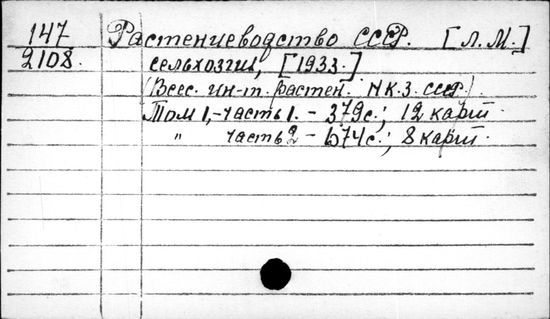 147 Растениеводство СССР. [Л.М.]
2108. сельхозгиз, [1933.]
(Всес. ин-т. растен. НКЗ. СССР)
Том 1,-часть 1. - 379с.; 12 карт.
" часть 2 - 674с.; 8 карт.